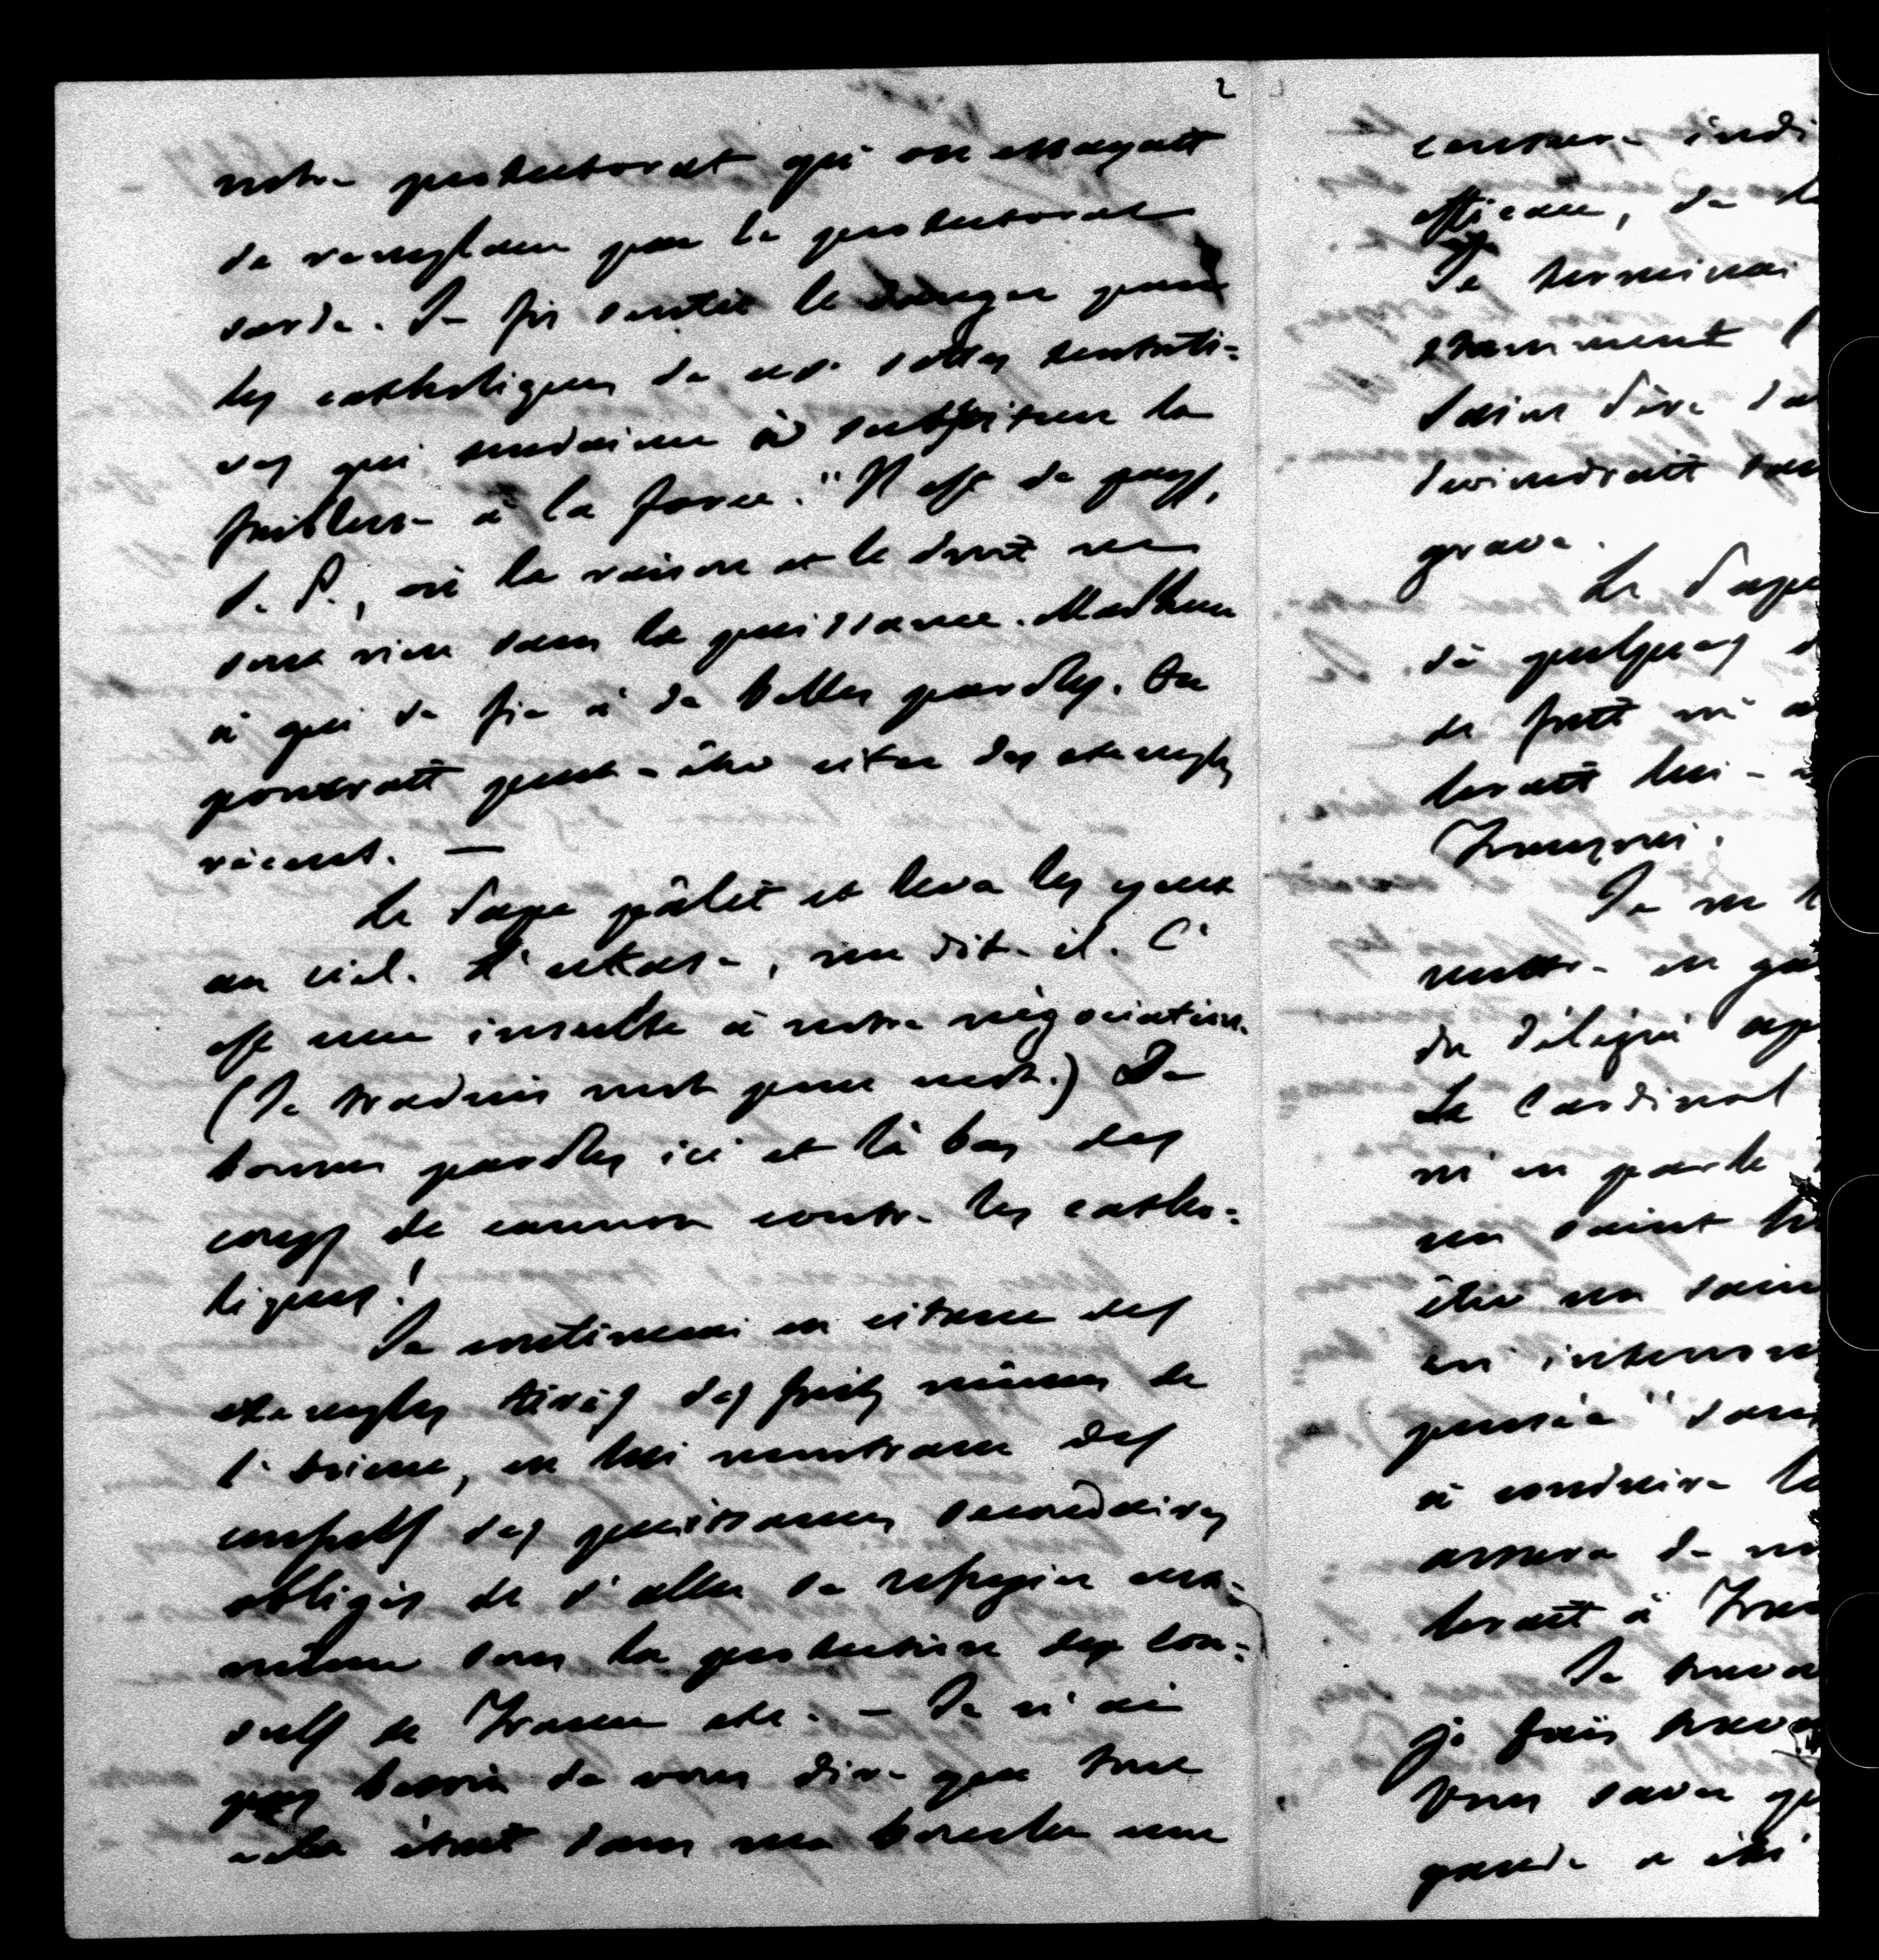 2
notre protectorat qu'on essayait
de remplacer par le protectorat
sarde. Je fis sentir le danger pour
les catholiques de ces sottes tentati=
ves qui tendaient à substituer la
faiblesse à la force. "Il est de pays,
S. P., où la raison et le droit ne
sont rien sans la puissance. Malheur
à qui se fie à de belles paroles. On
pourrait peut-être citer des exemples
récents. —
Le Pape pâlit et leva les yeux
au ciel. L'ukase, me dit-il. C'
est une insulte à notre négociation.
(Je traduis mot pour mot.) De
bonnes paroles ici et là bas des
coups de canon contre les catho=
liques!
Je continuai en citant des
exemples tirés des faits mêmes de
l'Orient, en lui montrant des
consuls des puissances secondaires
obligés de s'aller se refugier eux-
même sous la protection des con=
suls de France etc. — Je n'ai
pas besoin de vous dire que tout
cela était dans ma bouche une
censure indi
efficace, de
Je terminai
examinent
Saint Père
deviendrait
grave.
Le Pape
de quelques
de fait
lerait lui-
François.
Je ne
mettre en ga
du délégué ap
Le Cardinal
m'en parle
un saint
être un sain
en
pensée "sans
à conduire le
assura de
lerait à
Je
je fais
Vous savez
garde a été